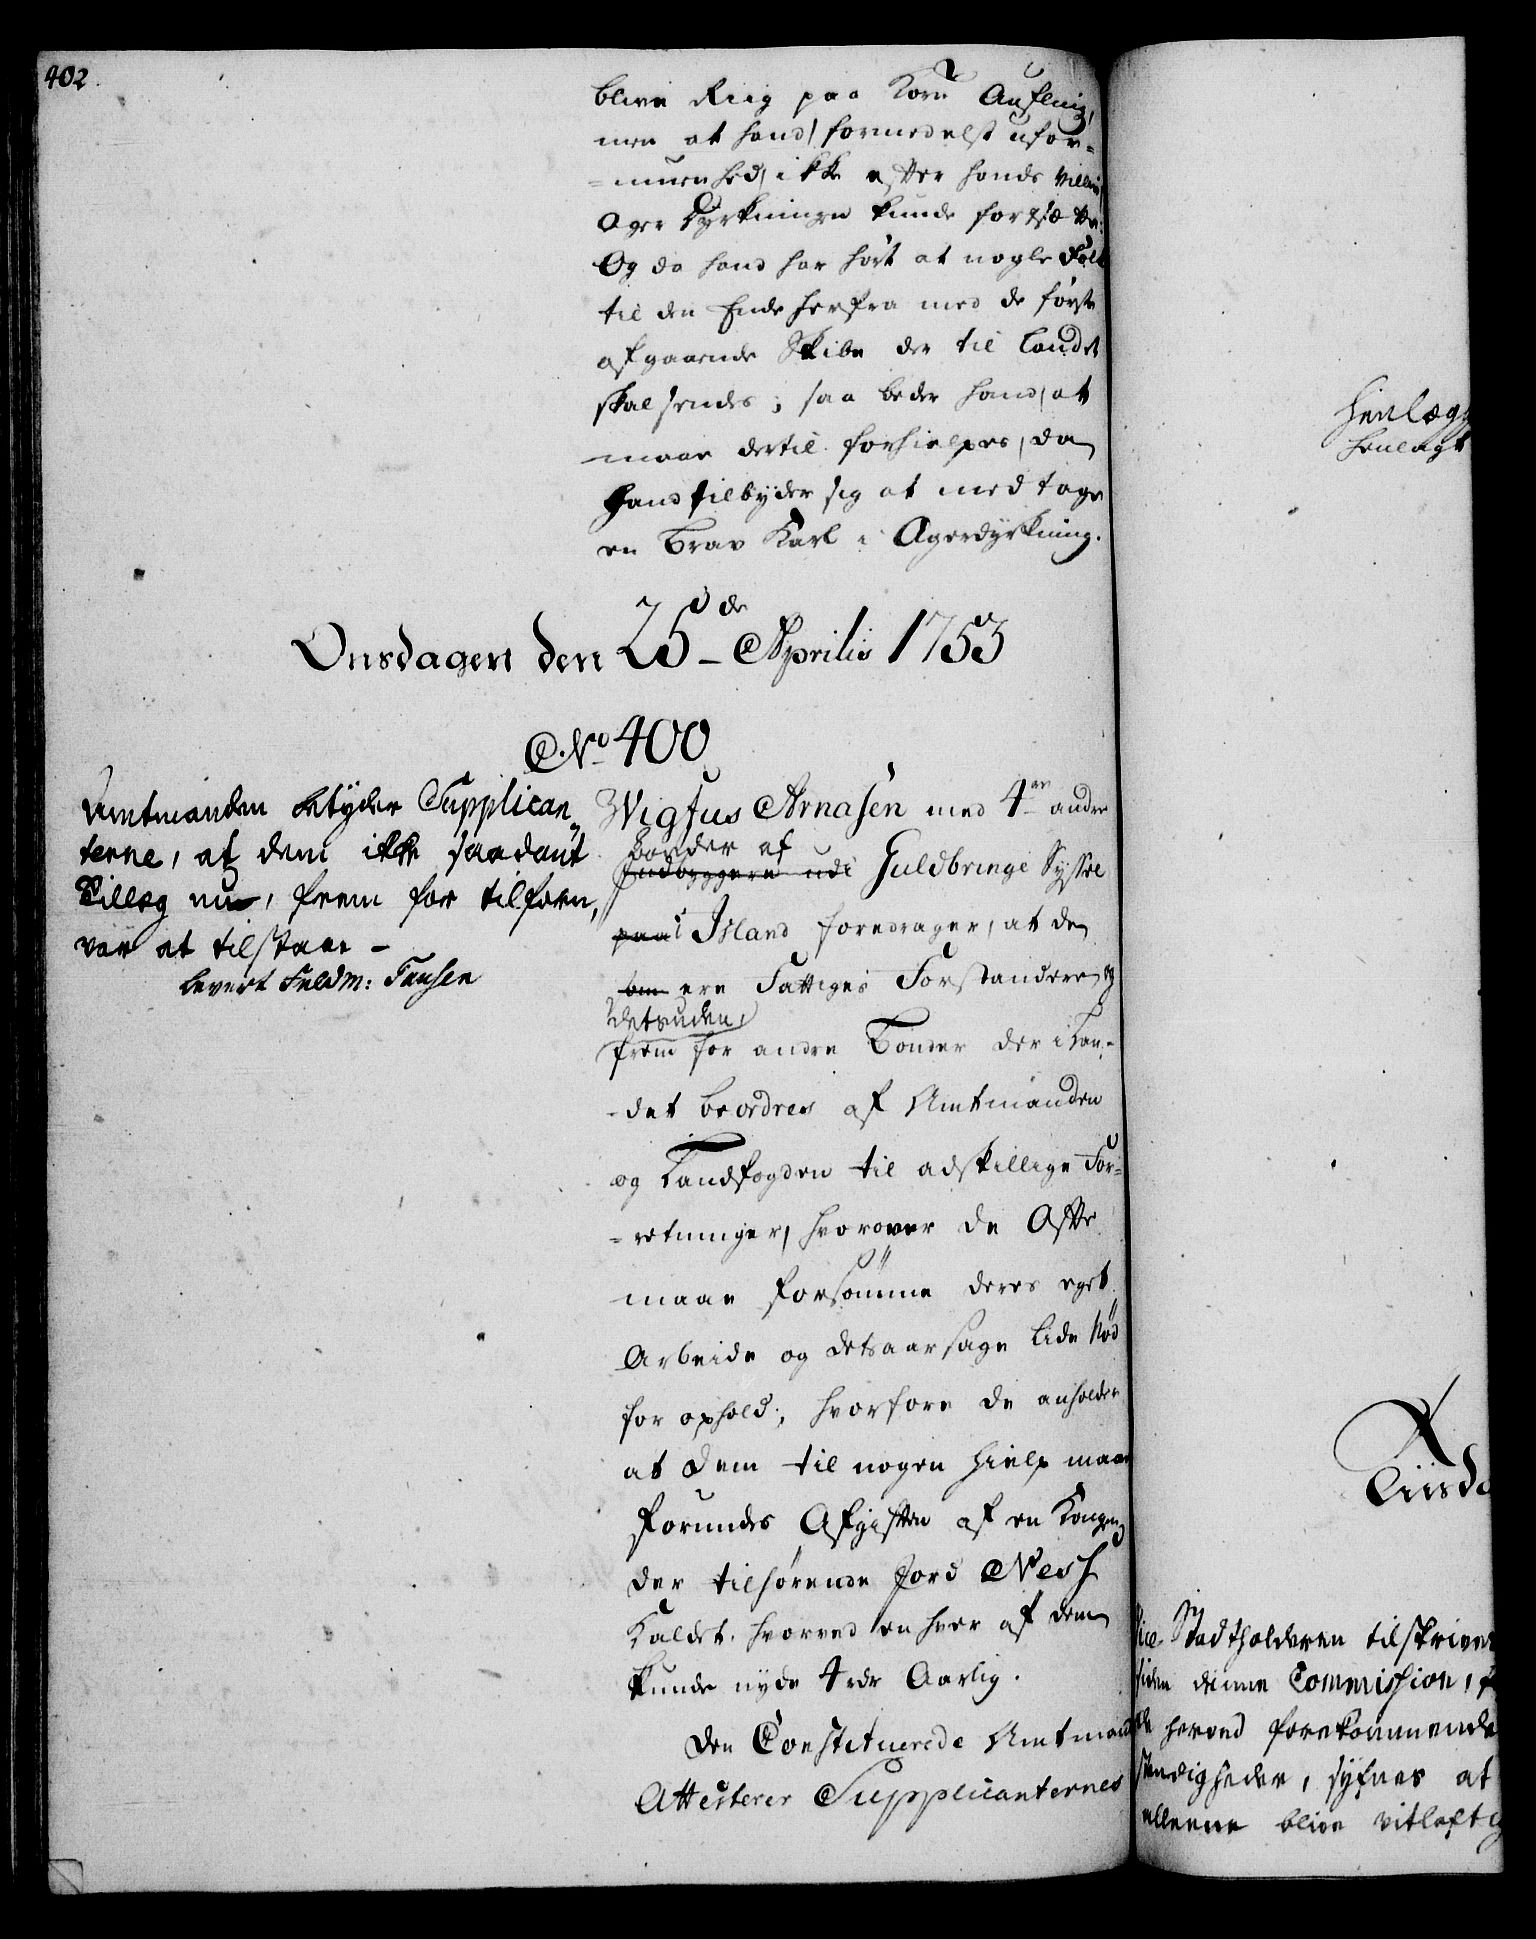 402
blive Riig paa Korn Aufling,
men at hand, formedelst ufor-
=muenhed, ikke efter hands Villie
Ager Dyrkningen kunde fortsætte:
Og da hand har hørt at nogle Folk
til den Ende herfra med de første
afgaaende Skibe der til Landet
skal sendes; saa beder hand, at
maae dertil forhielpes, da
hand tilbyder sig at med tage
en brav Karl i Agerdyrkning.
Onsdagen den 25de Aprilis 1753
No 400
Amtmanden betyder Supplican-
terne, at dem ikke saadant
Tillæg nu, frem for tilforn,
var at tilstaae -
levert Fuldm: Fansen
Wigfus Arnasen med 4re andre
Bønder af
Indbyggere udi Guldbringe Syssel
paa i Island foredrager, at de
som ere Fattiges Forstandere og
desuden,
frem for andre Bønder der i Lan-
-det beordres af Amtmanden
og Landfogden til adskillige For-
=retninger, hvorover de Ofte
maae forsømme deres eget
Arbeide og detsaarsage lide Nød
for ophold; hvorfore de anholder
at dem til nogen Hielp maae
forundes Afgiften af en Kongen
der tilhørende Jord Ness
Kaldet. hvorved en hver af dem
kunde nyde 4 rdr Aarlig.
Den Constituerede Amtmand
Attesterer Supplicanternes
Henlægg
henlagt
Tiisda
Vice-Stadtholderen tilskrives
siden denne Commission, f
de herved forekommende
stendigheder, synes at
alleene blive vitløftig